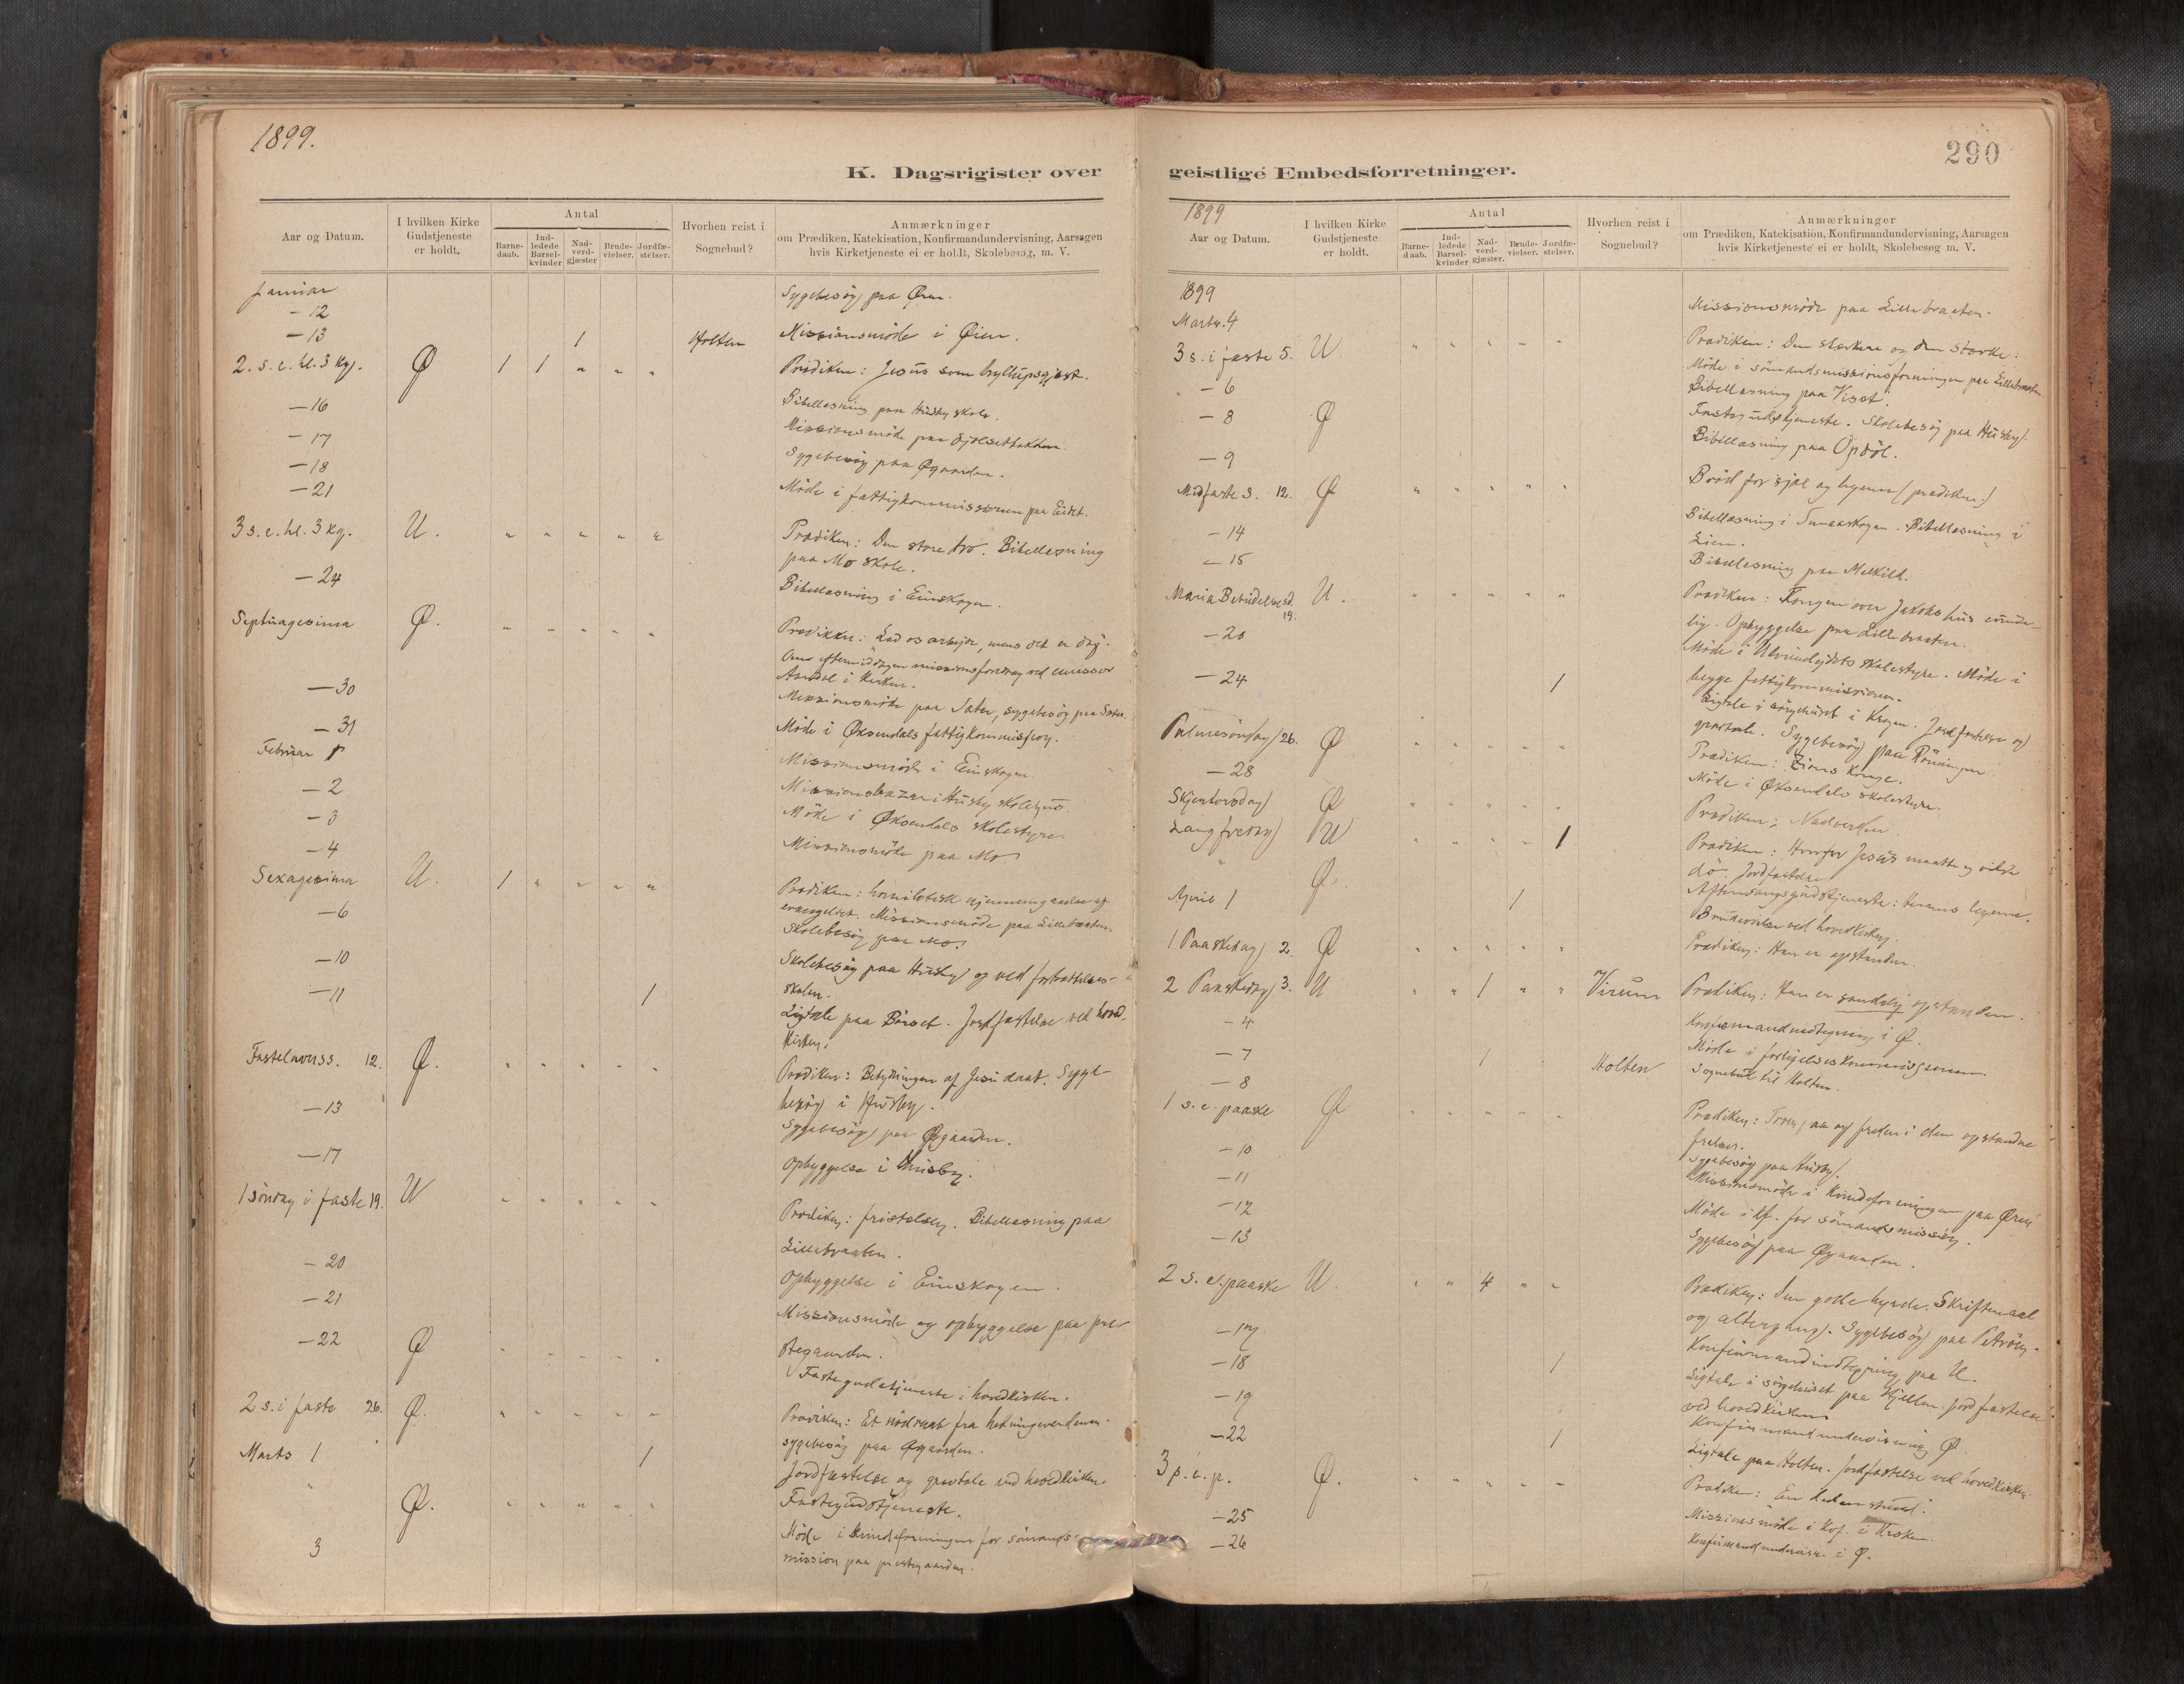 1899.
K. Dagsrigister over
Aar og Datum.
I hvilken Kirke
Gudstjeneste
er holdt.
Antal
Barne-
daab.
Ind-
ledede
Barsel-
kvinder
Nad-
verd-
gjæster
Brude-
vielser.
Jordfæ-
stelser.
Hvorhen reist i
Sognebud?
Anmærkninger
om Prædiken, Katekisation, Konfirmandundervisning, Aarsagen
hvis Kirketjeneste ei er holdt, Skolebesøg, m. V.
Januar Sygebesøg paa Øren.
- 12
- 13 1 Holten Missionsmöde i Øien.
2. s. e. hl. 3 kg. Ø 1 1 " " " Prædiken: Jesus som bryllupsgjæst.
- 16 Bibellæsning paa Husby skole.
- 17 Missionsmöde paa
- 18 Sygebesøg paa Øgaarden.
- 21 Möde i fattigkommissionen paa Eidet.
3 s. e. hl. 3 kg. U. " " " " " Prædiken: Den store tro. Bibellæsning
paa Mo skole.
- 24 Bibellæsning i Einskogen.
Septuagesima Ø. " " " " " Prædiken: Lad os arbejde, mens det er dag.
Om eftermiddagen missionsforedrag ved
i kirken.
- 30 Missionsmöde paa Sæter, sygebesøg paa Sæter.
- 31 Möde i Øksendals fattigkommission.
Februar 1 Missionsmöde i Einskogen.
- 2 Missionsbazar i Husby skolehus.
- 3 Möde i Øksendals skolestyre.
- 4 Missionsmöde paa Mo
Sexagesima U. 1 " " " " Prædiken: homiletisk gjennemgaaelse af
- 6 evangeliet. Missionsmöde paa Lillebraaten.
Skolebesøg paa Mo.
- 10 Skolebesøg paa Husby og ved fortsættelses-
skolen.
- 11 1 Ligtale paa Börset. Jordfæstelse ved hoved-
kirken.
Fastelavnss. 12. Ø. " " " " " Prædiken: Betydningen af Jesu daab. Syge-
besøg i Husby.
- 13 Sygebesøg paa Øgaarden.
- 17 Opbyggelse i Husby.
1 söndag i faste 19. U " " " " " Prædiken: fristelsen. Bibellæsning paa
Lillebraaten.
- 20 Opbyggelse i Einskogen.
- 21 Missionsmöde og opbyggelse paa præ-
stegaarden.
- 22 Ø " " " " " Fastegudstjeneste i hovedkirken.
2 s. i faste 26. Ø. " " " " " Prædiken: Et nödraab fra hedningeverdenen.
sygebesøg paa Øgaarden.
Marts 1 1 Jordfæstelse og gravtale ved hovedkirken.
" Ø. " " " " " Fastegudstjeneste.
3 Möde i kvindeforeningen for sömands-
mission paa prestegaarden.
290
geistlige Embedsforretninger.
1899
Aar og Datum.
I hvilken Kirke
Gudstjeneste
er holdt.
Antal
Barne-
daab.
Ind-
ledede
Barsel-
kvinder
Nad-
verd-
gjæster.
Brude-
vielser.
Jordfæ-
stelser.
Hvorhen reist i
Sognebud?
Anmærkninger
om Prædiken, Katekisation, Konfirmandundervisning, Aarsagen
hvis Kirketjeneste ei er holdt, Skolebesøg m. V.
1899
Marts. 4 Missionsmöde paa Lillebraaten.
3 s. i faste 5. U " " " " " Prædiken: Den stærkere og den stærke.
- 6 Möde i sömandsmissionsforeningen paa Lillebraaten.
Bibellæsning paa
- 8 Ø Fastegudstjeneste. Skolebesøg paa Husby.
- 9 Bibellæsning paa Opdöl.
Midfaste s. 12. Ø " " " " " Bröd for sjæl og legeme (prædiken)
- 14 Bibellæsning i Bibellæsning i
Lien.
- 15 Bibellæsning paa Melkild.
Maria Bebudelsesd. 19. U. " " " " " Prædiken: Kongen over Jakobs hus evinde-
lig. Opbyggelse paa Lillebraaten.
- 20 Möde i Ulvundeidets skolestyre. Möde i
begge fattigkommissioner.
- 24 1 Ligtale i sörgehuset i Jordfæstelse og
gravtale. Sygebesøg paa Röningen.
Palmesöndag 26. Ø " " " " " Prædiken: Zions Konge.
- 28 Möde i Øksendals skolestyre.
Skjertorsdag Ø " " " " " Prædiken: Nadverden.
Langfredag U " " " " 1 Prædiken: Hvorfor Jesus maatte og vilde
dö. Jordfæstelse.
" Ø. Aftensangsgudstjeneste: legeme.
April 1 1 Brudevielse ved hovedkirken.
1 Paaskedag 2. Ø " " " " " Prædiken: Han er opstanden.
2 Paaskedag 3. U " " 1 " " Virum Prædiken: Han er sandelig opstanden.
- 4 Konfirmandindtegning i Ø.
- 7 Möde i forligelseskommissionen.
- 8 1 Holten Sognebud til Holten.
1 s. e. paaske Ø " " " " " Prædiken: Troen paa og freden i den opstandne
frelser.
- 10 Sygebesøg paa Husby.
- 11 Missionsmöde i kvindeforeningen paa Øren
- 12 Möde i kf. for sömandsmission.
- 13 Sygebesøg paa Øgaarden.
2 s. e. paaske U. " " 4 " " Prædiken: Den gode hyrde. Skriftemaal
og altergang. Sygebesøg paa
- 17 Konfirmandindtegning paa U.
- 18 1 Ligtale i sörgehuset paa Hjellen. Jordfæstelse
ved hovedkirken
- 19 Konfirmandundervisning Ø.
- 22 1 Ligtale paa Holten. Jordfæstelse ved hovedkirken.
3 s. e. p. Ø. " " " " " Prædiken: En liden stund.
- 25 Missionsmöde i kvf. i
- 26 Konfirmandundervisn. i Ø.